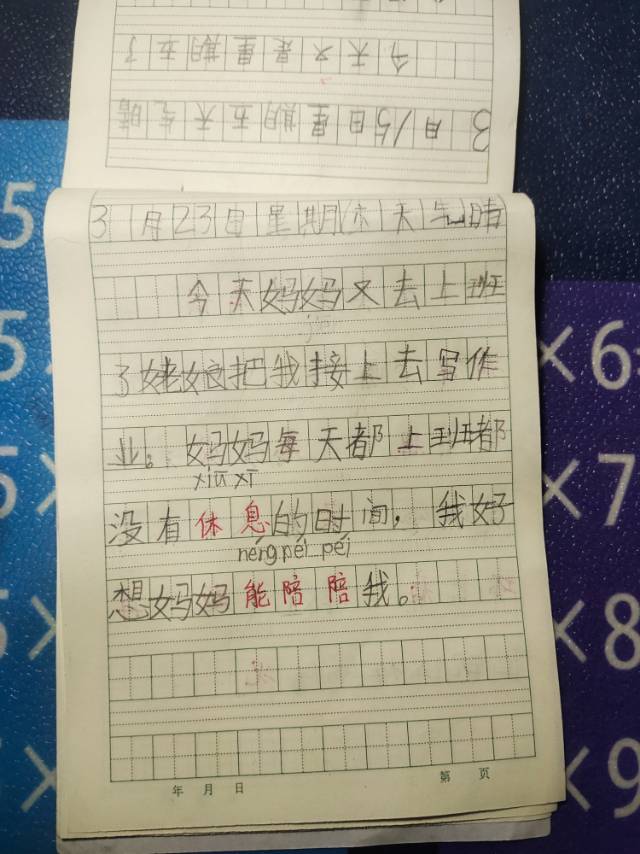 今天又是星期五了
3月15日星期五天气晴
3月23日星期六天气晴
今天妈妈又去上班
了姥娘把我接上去写作
业。妈妈每天都上班都
xiū xī
没有休息的时间，我好
néng péi péi
想妈妈能陪陪我。
年 月 日 第 页
×6=
×7
×8
×9